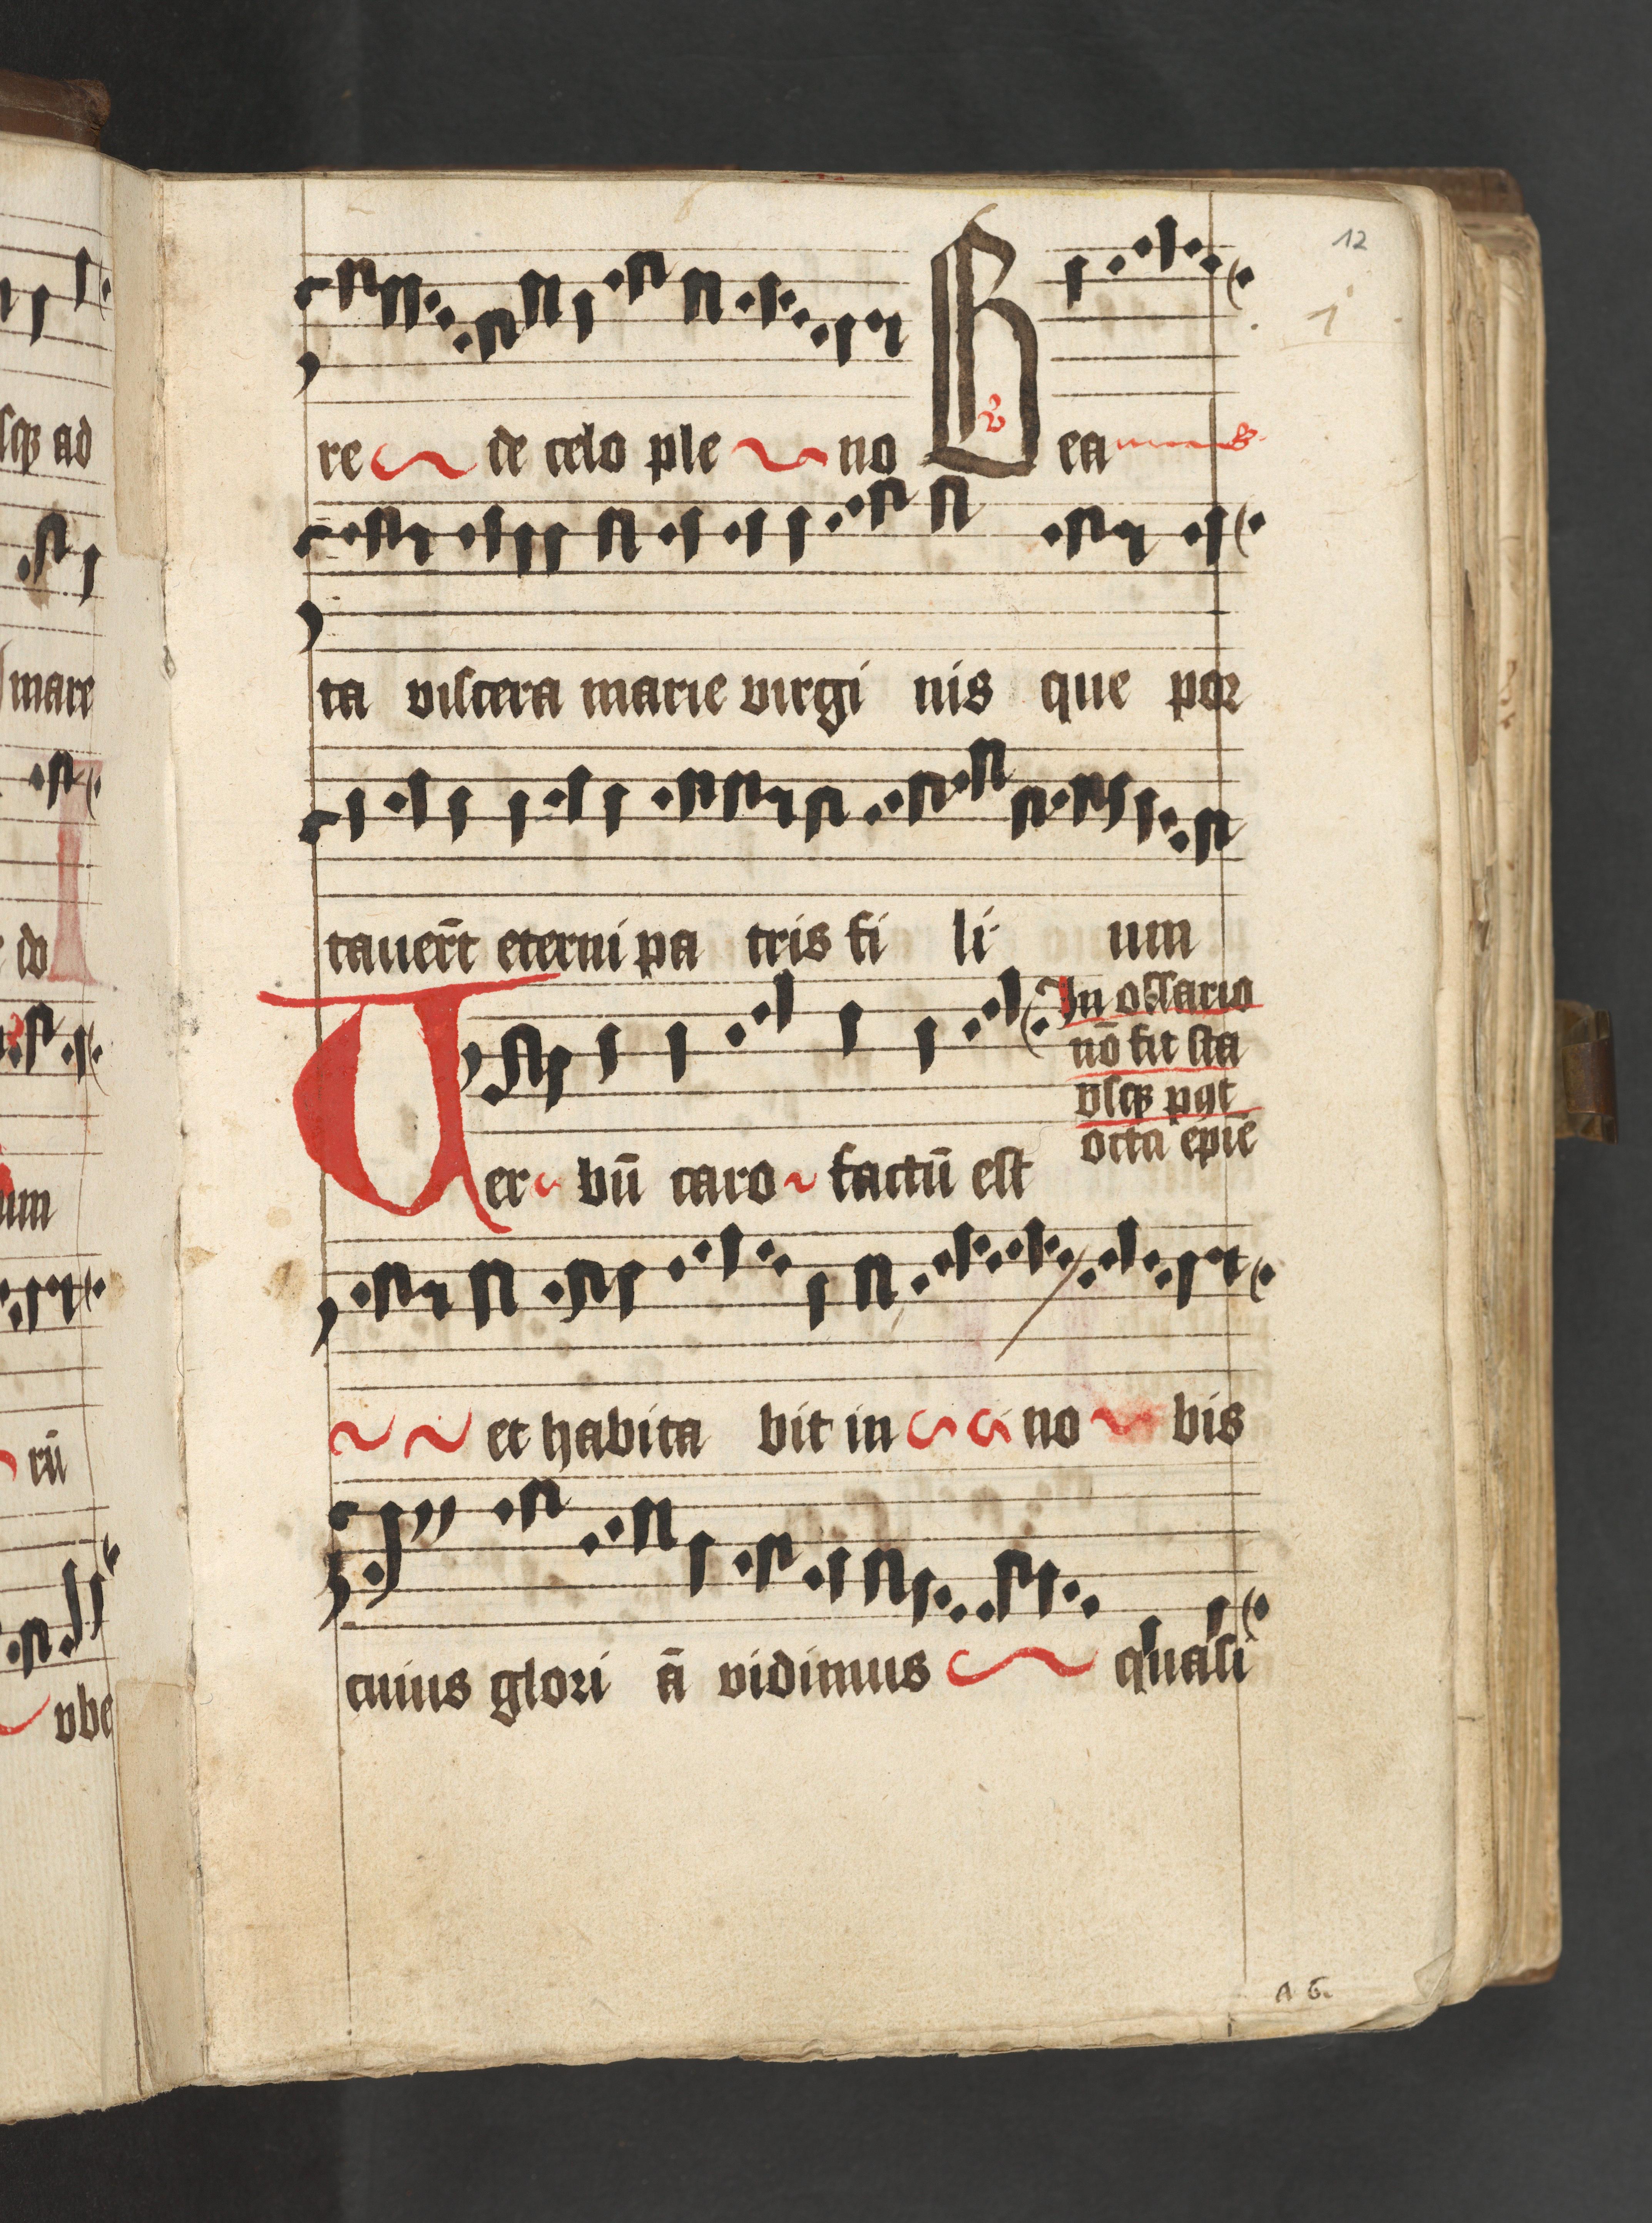 12
1
re de celo ple no B ea
ta viscera marie virgi nis que por
tauerūt eterni pa tris fi li um
In ossario
nō fit sta
vsqꝫ pꝰt
octā epīe
Uer bū caro factū est
et habita bit in no bis
cuius glori ā vidimus quasi
A 6.
sqꝫ ad
mare
do
um
rū
vbe